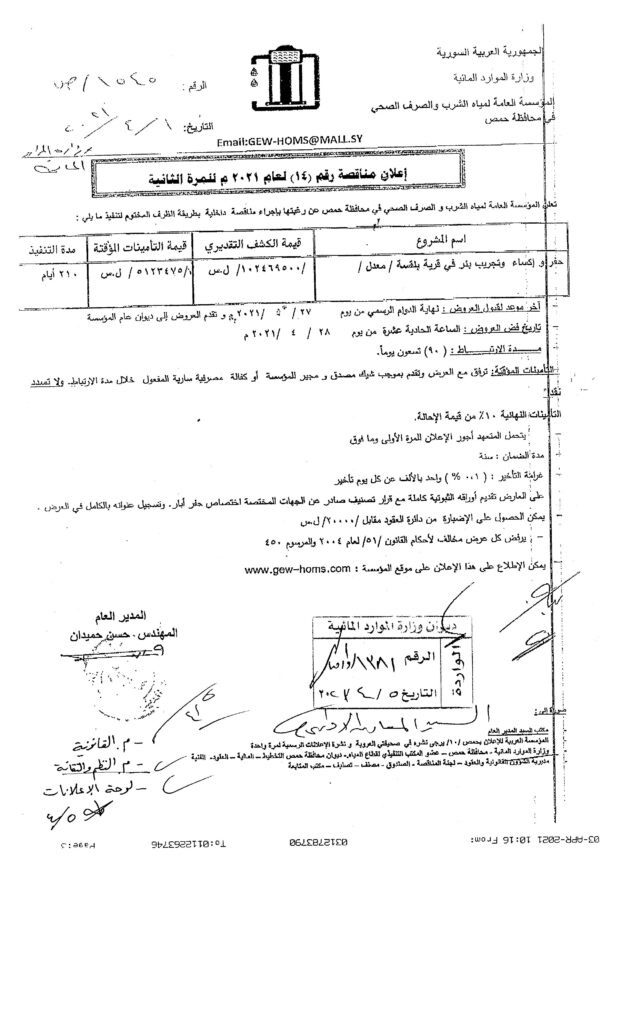 الجمهورية العربية السورية
وزارة الموارد المائية
المؤسسة العامة لمياه الشرب والصرف الصحي
في محافظة حمص
الرقم: ١٥٤٥/ص
التاريخ: ١/٤/٢٠٢١
Email:GEW-HOMS@MALL.SY
وزارة الموارد
المائية
إعلان مناقصة رقم (١٤) لعام ٢٠٢١ م للمرة الثانية
تعلن المؤسسة العامة لمياه الشرب و الصرف الصحي في محافظة حمص عن رغبتها بإجراء مناقصة داخلية بطريقة الظرف المختوم لتنفيذ ما يلي :
اسم المشروع قيمة الكشف التقديري قيمة التأمينات المؤقتة مدة التنفيذ
حفر و إكساء وتجريب بئر في قرية بلقسة / معدل / /١٠٢٤٦٩٥٠٠/ ل.س /٥١٢٣٤٧٥/ ل.س ٢١٠ أيام
- آخر موعد لقبول العروض : نهاية الدوام الرسمي من يوم ٢٧ / /٢٠٢١ م و تقدم العروض إلى ديوان عام المؤسسة
- تاريخ فض العروض : الساعة الحادية عشرة من يوم ٢٨ / ٤ / ٢٠٢١ م
- مدة الارتباط : ( ٩٠ ) تسعون يوماً.
- التأمينات المؤقتة: ترفق مع العرض وتقدم بموجب شيك مصدق و مجير للمؤسسة أو كفالة مصرفية سارية المفعول خلال مدة الارتباط. ولا تسدد
نقداً
التأمينات النهائية ١٠٪ من قيمة الإحالة.
- يتحمل المتعهد أجور الإعلان للمرة الأولى وما فوق
- مدة الضمان : سنة
- غرامة التأخير : ( ٠.١ % ) واحد بالألف عن كل يوم تأخير
- على العارض تقديم أوراقه الثبوتية كاملة مع قرار تصنيف صادر عن الجهات المختصة اختصاص حفر آبار. وتسجيل عنوانه بالكامل في العرض .
- يمكن الحصول على الإضبارة من دائرة العقود مقابل /٢٠٠٠٠/ ل.س
- يرفض كل عرض مخالف لأحكام القانون /٥١/ لعام ٢٠٠٤ والمرسوم ٤٥٠
- يمكن الإطلاع على هذا الإعلان على موقع المؤسسة : www.gew-homs.com
المدير العام
المهندس . حسن حميدان
ديوان وزارة الموارد المائية
الواردة
الرقم ١٣٨١
التاريخ ٥
صورة إلى :
مكتب السيد المدير العام
المؤسسة العربية للإعلان بحمص /١٠/ يرجى نشره في صحيفتي العروبة و نشرة الإعلانات الرسمية لمرة واحدة
وزارة الموارد المائية - محافظة حمص - عضو المكتب التنفيذي لقطاع المياه- ديوان محافظة حمص التخطيط - المالية - العقود- الفنية
مديرية الشؤون القانونية والعقود - لجنة المناقصة - الصندوق - مصنف - تصانيف - مكتب المتابعة
- م. القانونية
- م. النظم والتقانة
- لوحة الإعلانات
03-APR-2021 10:16 From: 0312783790 To:0112263746 Page: